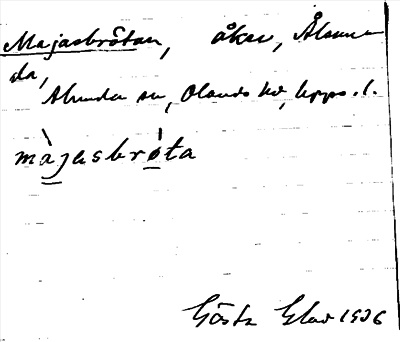 Majasbråtan, åker, Ålsunda,
Alunda sn, Olands hd, Upps. l.
màjasbrota
Gösta Elav 1936